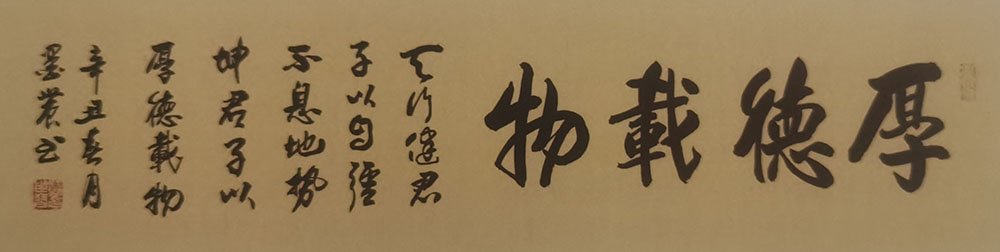 厚德載物
天行健君
子以自強
不息地勢
坤君子以
厚德載物
辛丑春月
墨農書